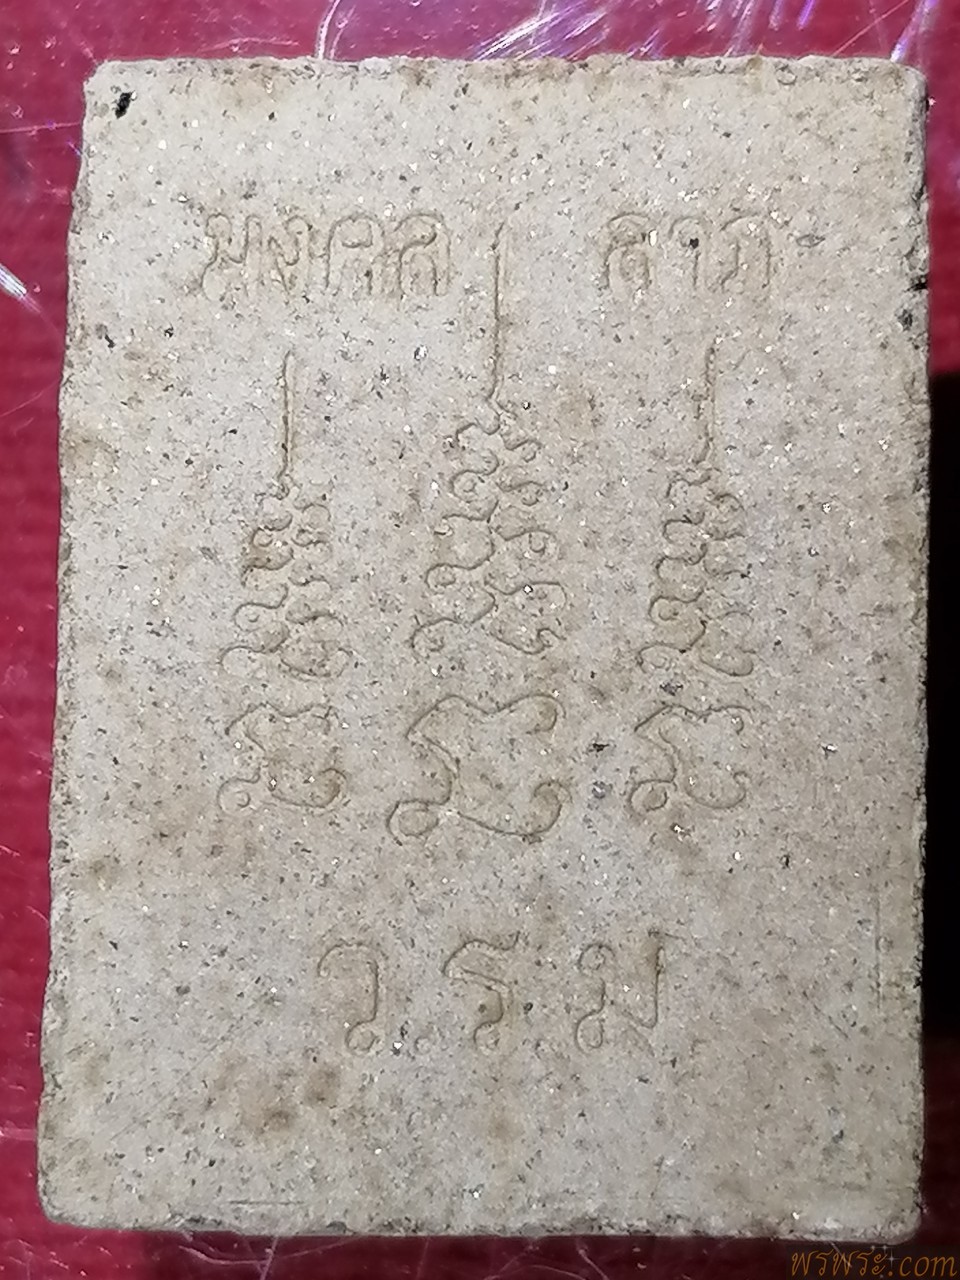 มงคล ลาภ
ว.ร.ม
พรพระ.com